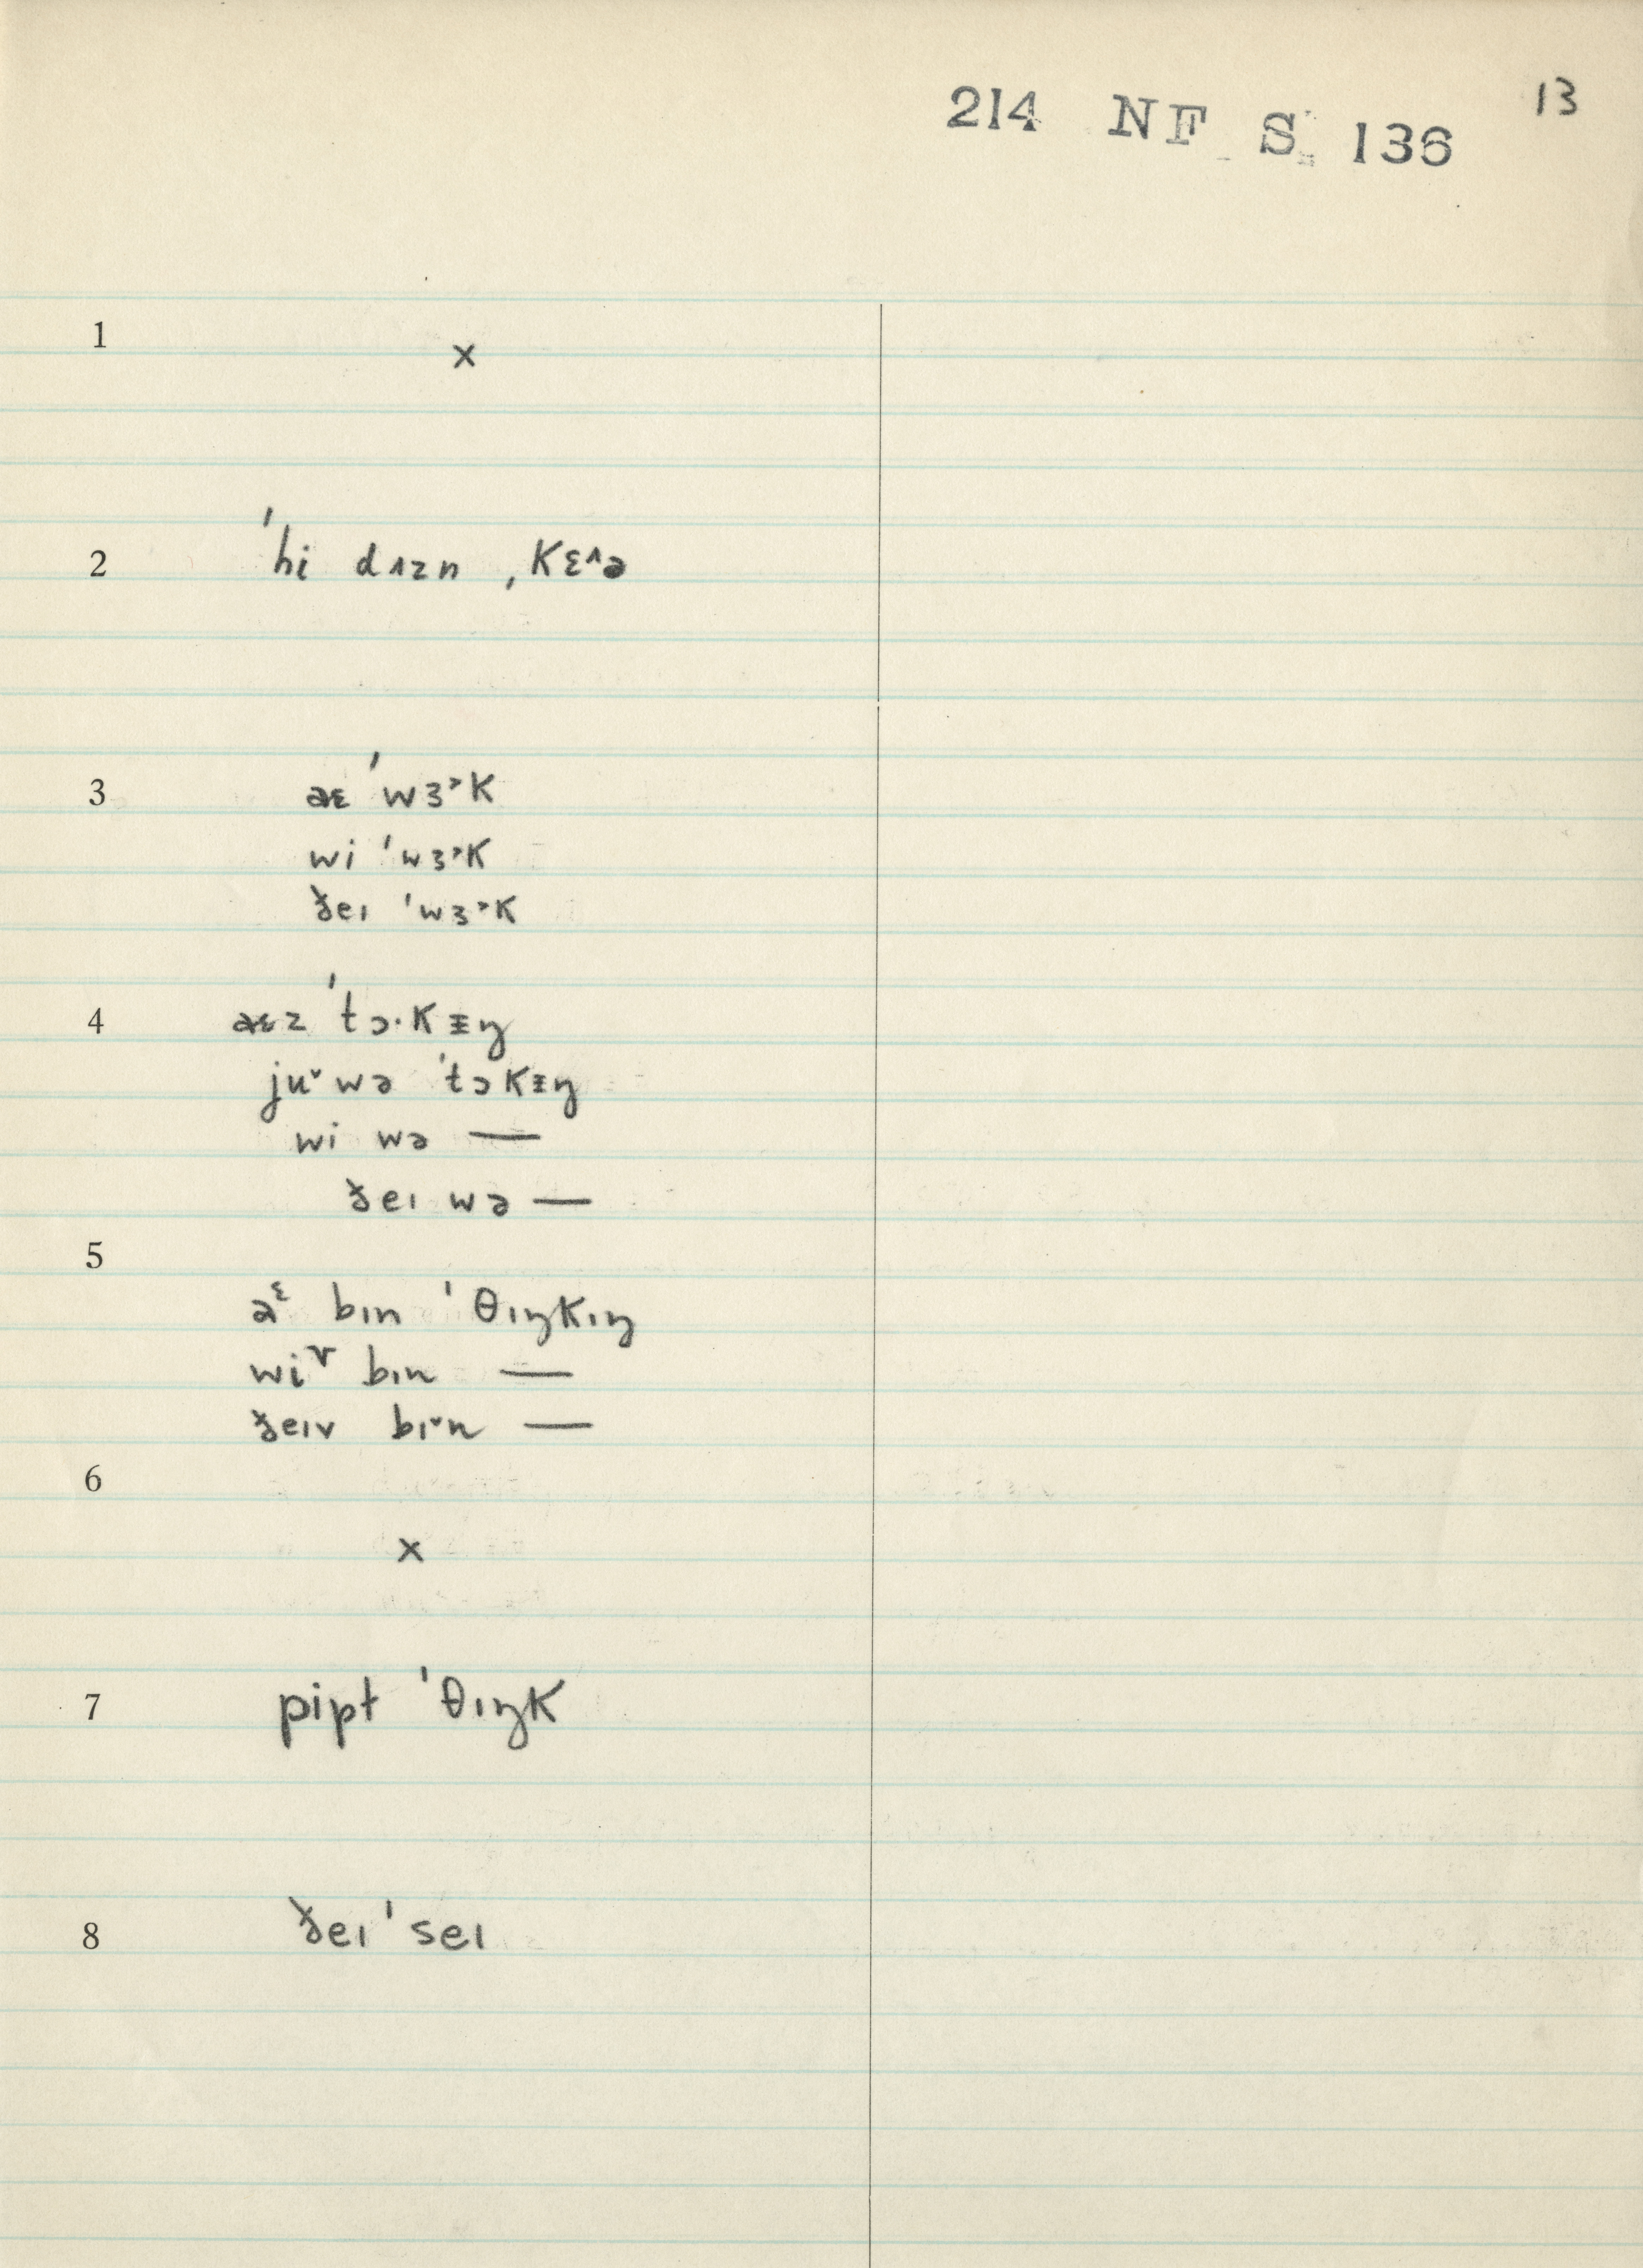 214 NF S 136 13
1 x
2 ˈhi dʌzn ˌkɛ^ə
3 aɛ ˈwɜ˃k
wi ˈwɜ˃k
ðeɪ ˈwɜ˃k
4 aɛz ˈtɔ·kɪŋ
juˇ wə ˈtɔkɪŋ
wi wə —
ðeɪ wə —
5 aᵋ bɪn ˈθɪŋkɪŋ
wiᵛ bɪn —
ðeɪv bɪˇn —
6 x
7 pipɫ ˈθɪŋk
8 ðeɪ ˈseɪ